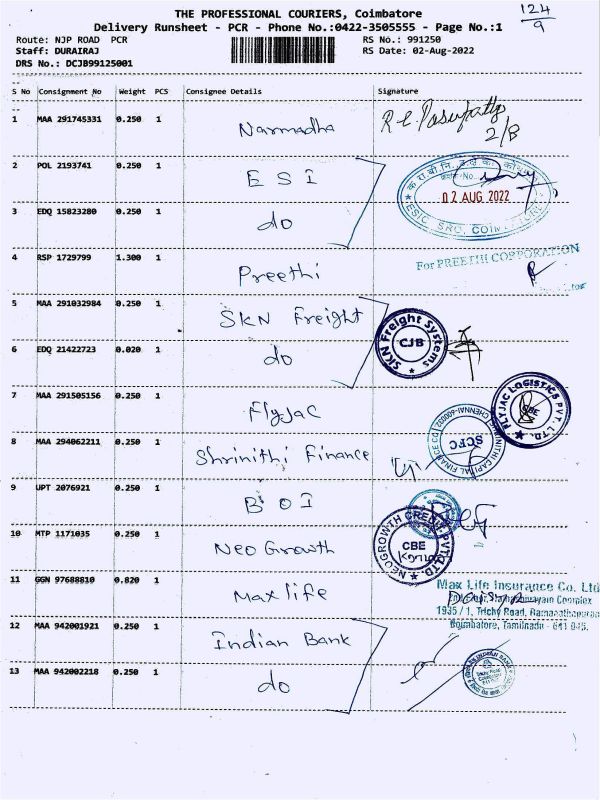 THE PROFESSIONAL COURIERS, Coimbatore
124
9
Delivery Runsheet - PCR - Phone No.:0422-3505555 - Page No.:1
Route: NJP ROAD PCR RS No.: 991250
Staff: DURAIRAJ RS Date: 02-Aug-2022
DRS No.: DCJB99125001
S No Consignment No Weight PCS Consignee Details Signature
1 MAA 291745331 0.250 1 Narmadha
2/8
2 POL 2193741 0.250 1 ESI
02 AUG 2022
ESIC, SRO, COIMBATORE
3 EDQ 15823280 0.250 1 do
4 RSP 1729799 1.300 1 Preethi
For PREETHI CORPORATION
5 MAA 291032984 0.250 1 SKN Freight
SKN Freight Systems
CJB
6 EDQ 21422723 0.020 1 do
7 MAA 291505156 0.250 1 Flyjac
FLYJAC LOGISTICS PVT. LTD.
8 MAA 294062211 0.250 1 Shrinithi Finance
SHRINITHI CAPITAL FINANCE CO
CHENNAI-600002
SCFC
9 UPT 2076921 0.250 1 BOI
10 MTP 1171035 0.250 1 Neo Growth
NEOGROWTH CREDIT PVT LTD
CBE
11 GGN 97688810 0.820 1 Max life
Max Life Insurance Co. Ltd
Complex
1935 / 1, Trichy Road, Ramanathapuram
Coimbatore, Tamilnadu - 641 045.
12 MAA 942001921 0.250 1 Indian Bank
13 MAA 942002218 0.250 1 do